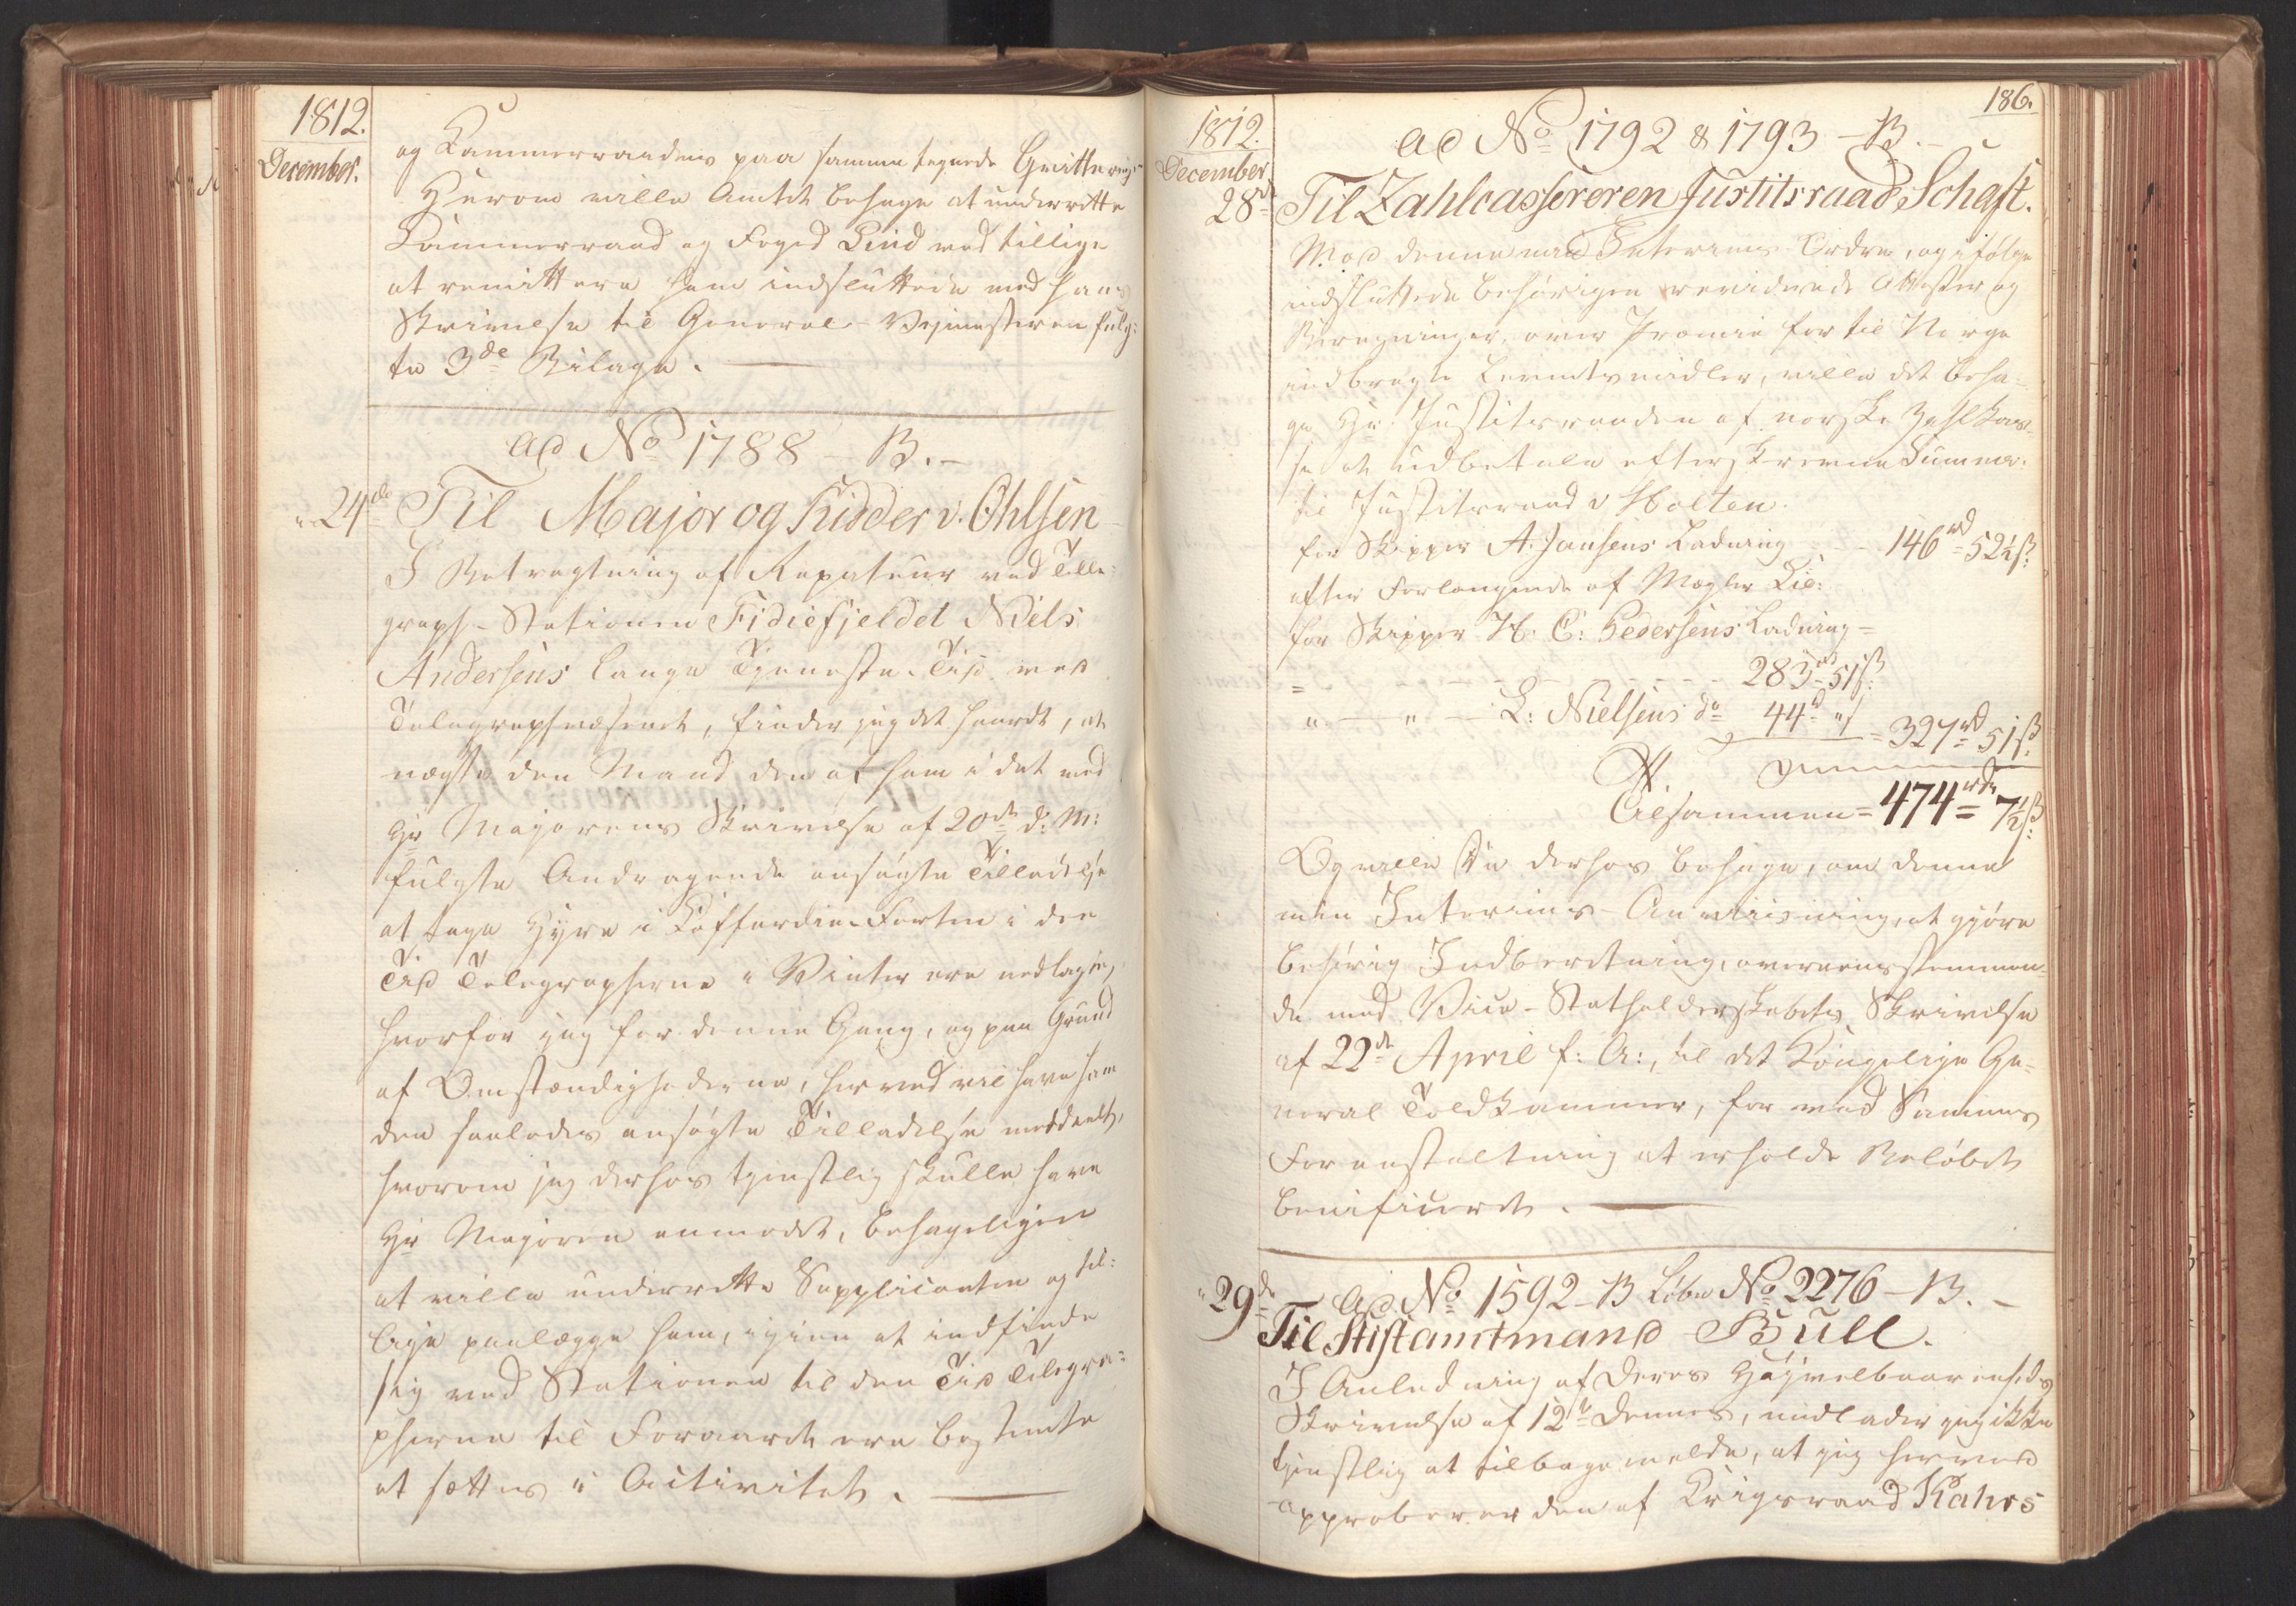 1812.
December.
og Kammerraadens paa samme tegnede Qvittering.
Herom ville Amtet behage at underrette
Kammerraad og Foged Lind ved tillige
at remittere ham indsluttede med hans
Skrivelse til General-Vejmesteren fulg:
te 3de Bilage.
ad No 1788 - B. -
24de Til Major og Ridder v. Ohlsen
I Betragtning af Repeteur ved Tele:
graph-Stationen Fidiefjeldet Niels
Andersens lange Tjeneste-Tid ved
Telegraphvæsenet, finder jeg det haardt, at
nægte den Mand den af ham i det med
Hr Majorens Skrivelse af 20de d: M:
fulgte Andragende ansøgte Tilladelse
at tage Hyre i Kofferdie-Farten i den
Tid Telegrapherne i Vinter ere nedlagte,
hvorfor jeg for denne Gang, og paa Grund
af Omstændighederne, herved vil have ham
den saaledes ansøgte Tilladelse meddeelt,
hvorom jeg derhos tjenstlig skulle have
Hr Majoren anmodet, behageligen
at ville underrette Supplicanten og til:
lige paalægge ham, igien at indfinde
sig ved Stationen til den Tid Telegra:
pherne til Foraaret ere bestemte
at sættes i Activitet.
186.
1812.
December
28de
ad No 1792 & 1793 - B.
Til Zahlcassereren Justitsraad Schaft.
Mod denne min Interims Ordre, og ifølge
indsluttede behørigen reviderede Attester og
Beregninger, over Præmie for til Norge
indbragte Levnetsmidler, ville det beha-
ge Hr. Justitsraaden af norske Zahlkas-
se at udbetale efterskrevne Summer.
til Justitsraad v Holten.
for Skipper A. Jansens Ladning - - 146 rd 52½ ß:
efter Forlangende af Mægler Lie:
for Skipper H. C: Pedersens Ladning =
= - - - - - - 283 rd 51 ß:
" - " - L: Nielsens do 44 rd " ß = 327 rd 51 ß:
Tilsammen = 474 rdr 7½ ß:
Og ville De derhos behage, om denne
min Interims-Anviisning, at gjøre
behørig Indberetning, overeensstemmen-
de med Vice-Statholderskabets Skrivelse
af 22de April f: A:, til det Kongelige Ge-
neral Toldkammer, for ved Sammes
Foranstaltning at erholde Beløbet
bonificeret.
29de ad No 1592 - B Løbe No 2276 - B. -
Til Stiftamtmand Bull.
I Anledning af Deres Højvelbaarenheds
Skrivelse af 12te dennes, undlader jeg ikke
tjenstlig at tilbagemelde, at jeg herved
approberer den af Krigsraad Kahrs